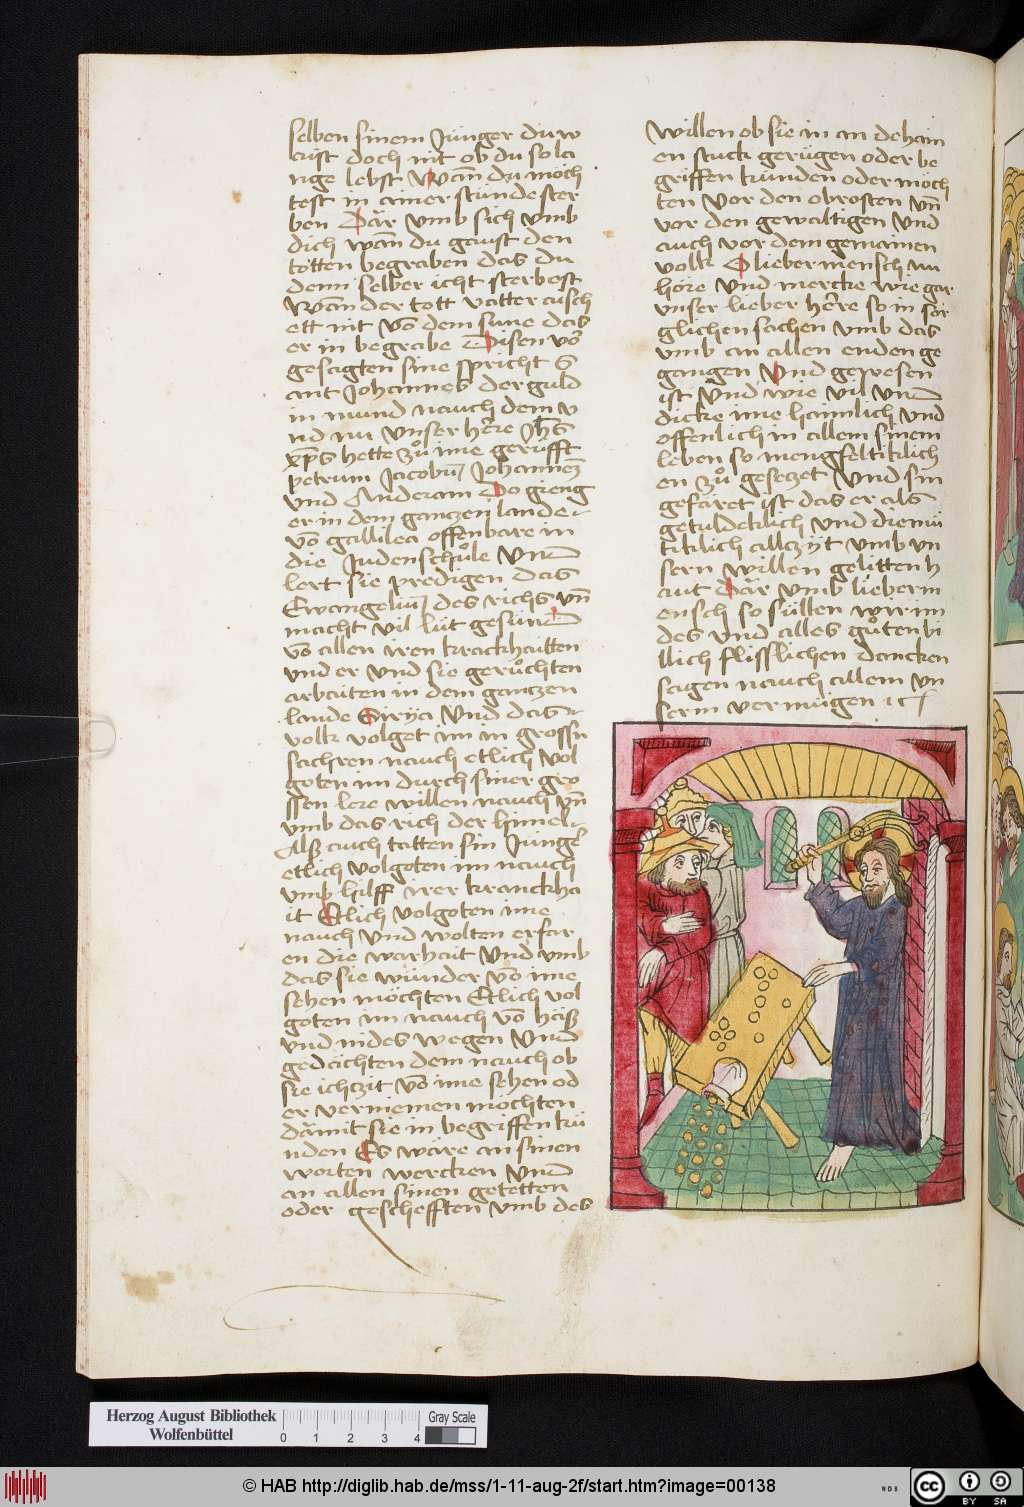 selben sinem Jünger du w
aist doch nit ob du so la
nge lebst Wañ du möch
test in ainer stunde ster
ben Där vmb sich vmb
dich wañ du gaust den
totten begraben das du
denn selber icht sterbest
Wañ der tott vatter aisch
ett nit võ dem sune das
er in begrabe Disen vor
gesagten sine spricht S
ant Johannes der guld
in mund nauch dem v
nd nu vnser herre Jhs
xps hette zů ime gerüfft
petrum Jacobum Johannem
vnd Anderam Do gieng
er in dem gantzen lande
võ gallilea offenbare in
die Judenschůle vnd
lert sie predigen das
Ewangelium des richs vñ
macht vil lüt gesund
võ allen iren kranckhaitten
vnd er vnd sie gerůchten
arbaiten in dem gantzen
lande Sirya Vnd das
volk volget im in grossn
sachren nauch etlich vol
goten im durch siner gro
ssen lere willen nauch vñ
vmb das rich der himel
Alß auch tatten sin Jünger
etlich volgoten im nauch
vmb hilff irer kranckha
it Etlich volgoten ime
nauch vnd wolten erfar
en die warhait vnd vmb
das sie wunder võ ime
sehen möchten Etlich vol
goten im nauch võ häß
vnd nides wegen Vnd
gedächten dem nauch ob
sie ichzit võ ime sehen od
er vernemen möchten
dämit sie in begriffen kü
nden Es wäre an sinen
worten wercken Vnd
an allen sinen getetten
oder geschefften vmb des
willen ob sie in an dehain
en stuck gerügen oder be
griffen kunden oder möch
ten Vor den obrosten vñ
vor den gewaltigen vnd
auch vor dem gemainen
volk O lieber mensch nu
höre vnd mercke wie gar
vnser lieber herre so in sör
glichen sachen vmb das
vmb an allen enden ge
gangen Vnd gewesen
ist Vnd wie vil vnd
dicke ime haimlich vnd
offenlich in allem sinem
leben so mengfeltiklich
en zů gesetzet Vnd sin
gefäret ist das er als
getuldeklich vnd diemü
tiklich allzijt vmb vn
sern willen gelitten h
aut Där vmb lieber m
ensch so süllen wir im
des vnd alles gůten bi
llich flisslichen dancken
sagen nauch allem vn
serm vermügen
Herzog August Bibliothek
Wolfenbüttel
0 1 2 3 4
Gray Scale
© HAB http://diglib.hab.de/mss/1-11-aug-2f/start.htm?image=00138
WDB
cc
BY SA